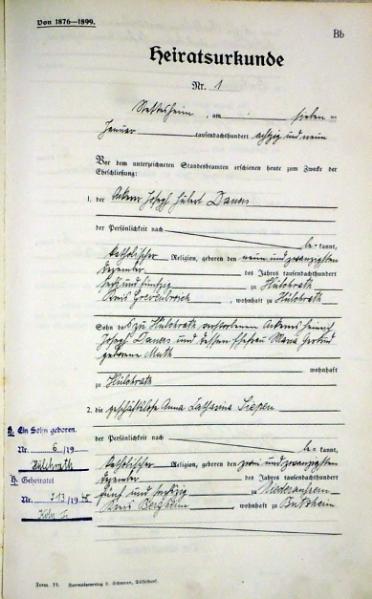 Von 1876—1899.
Bb
Heiratsurkunde
Nr. 1
am sieben =
Januar tausendachthundert achtzig und neun
Vor dem unterzeichneten Standesbeamten erschienen heute zum Zwecke der
Eheschließung:
1. der Ackerer Joseph Hubert Dauers
der Persönlichkeit nach
be= kannt,
katholischer Religion, geboren den neun und zwanzigsten
Dezember des Jahres tausendachthundert
sechs und fünfzig zu Hülchrath
Kreis Grevenbroich, wohnhaft zu Hülchrath
Sohn des zu Hülchrath verstorbenen Ackerers Heinrich
Joseph Dauers und dessen Ehefrau Maria Gertrud
geborene Muth
wohnhaft
zu Hülchrath
2. die geschäftslose Anna Catharina
der Persönlichkeit nach
be= kannt,
katholischer Religion, geboren den zwei und zwanzigsten
Dezember des Jahres tausendachthundert
fünf und sechzig zu Niederaußem
Kreis Bergheim, wohnhaft zu Butzheim
Ein Sohn geboren.
Nr. 6/19
Hülchrath
Geheiratet
Nr. 713/19
Köln
Form.